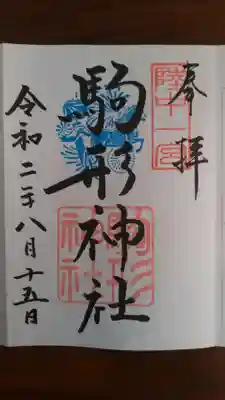 奉拝
陸中一宮
駒形神社
駒形
神社
令和二年八月十五日